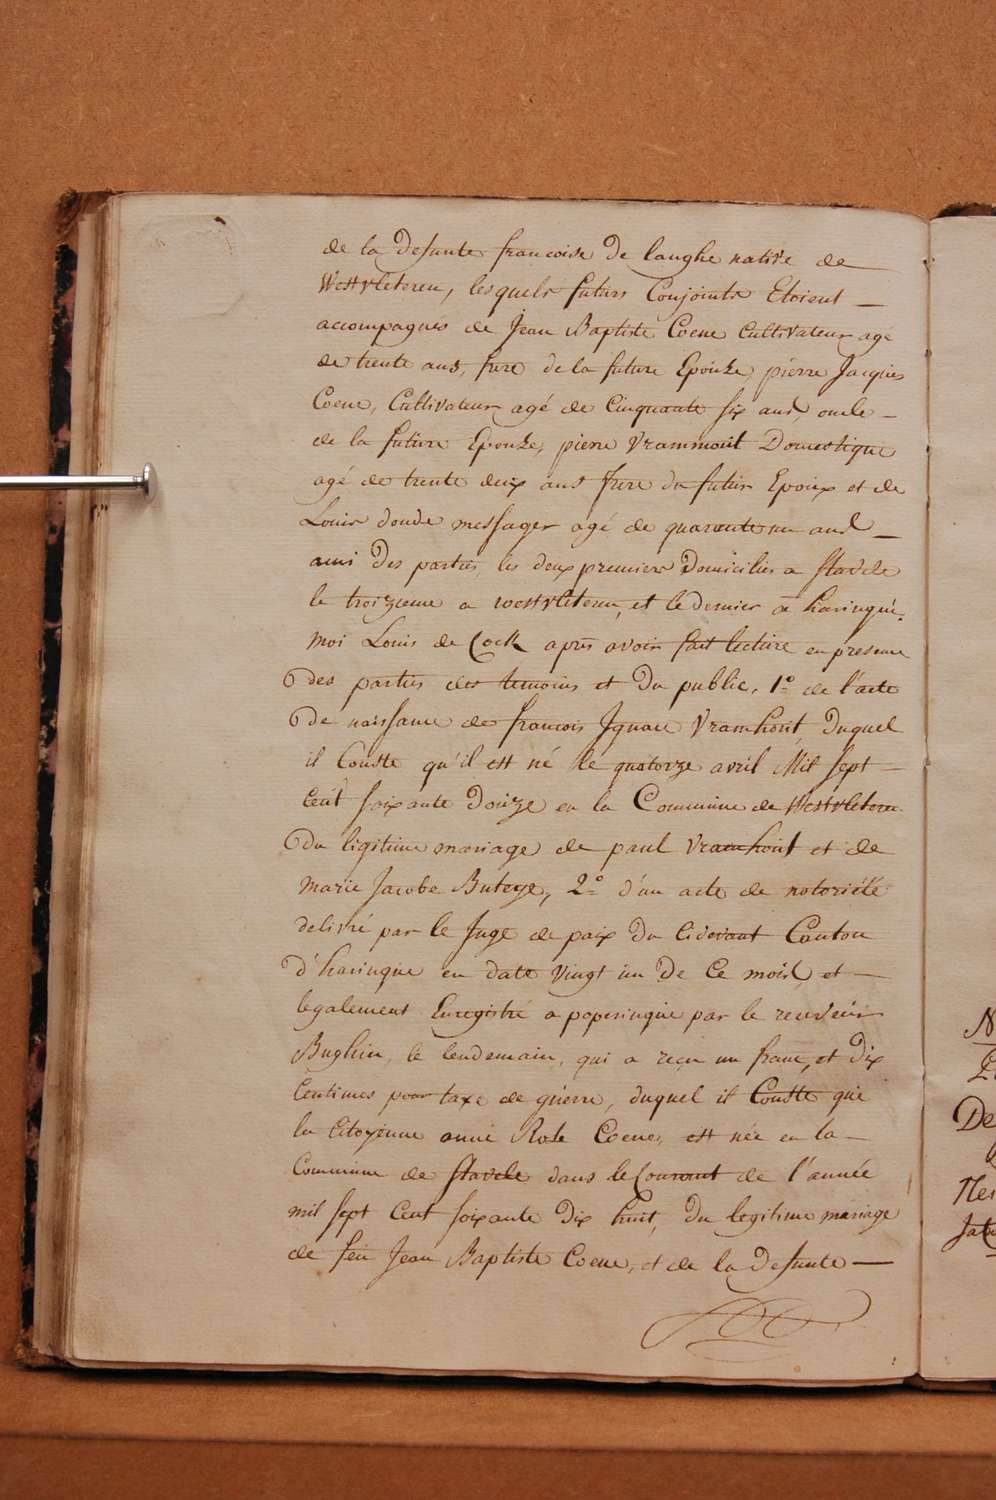 de la defunte francoise de langhe native de
Westvleteren, lesquels futurs Conjoints Etoient
accompagnés de Jean Baptiste Coene Cultivateur agé
de trente ans, frere de la future Epouze, pierre Jacques
Coene, Cultivateur agé de Cinquante six ans, oncle
de la future Epouze, pierre Vrammout Domestique
agé de trente deux ans frere du futur Epoux et de
Louis doude messager agé de quarante un ans
ami des parties, les deux premiers Domicilies a Stavele
le troizieme a westvleteren, et le dernier a haringue.
moi Louis de Cock après avoir fait lecture en presence
des parties des temoins et du public, 1° de l'acte
de naissance de francois Ignace Vramhout, duquel
il Conste qu'il est né le quatorze avril Mil sept
Cent soixante Douze en la Commune de Westvleteren
du ligitime mariage de paul Vramhout et de
marie Jacobe Buteye, 2° d'un acte de notoriété
delivré par le Juge de paix du Cidevant Canton
d'haringue en date vingt un de Ce mois, et
legalement Enregistré a poperingue par le receveur
Bughin, le lendemain, qui a reçu un franc, et dix
Centimes pour taxe de guerre, duquel il Conste que
la Citoyenne anne Rose Coene, est née en la
Commune de Stavele dans le Courant de l'année
mil sept Cent soixante Dix huit, du legitime mariage
de feu Jean Baptiste Coene, et de la Defunte
N
De